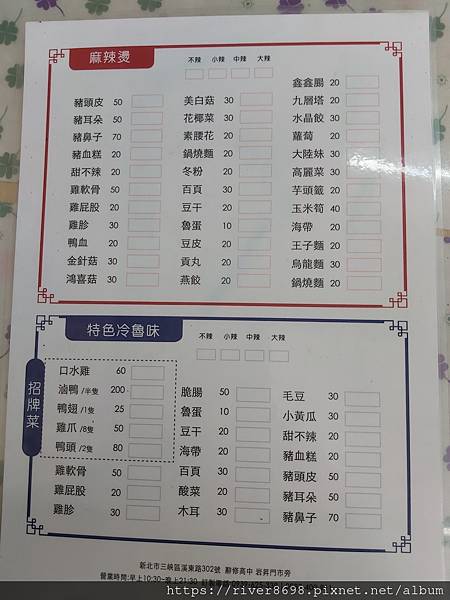 麻辣燙
不辣 小辣 中辣 大辣
豬頭皮 50
豬耳朵 50
豬鼻子 70
豬血糕 20
甜不辣 20
雞軟骨 50
雞屁股 20
雞胗 30
鴨血 20
金針菇 30
鴻喜菇 30
美白菇 30
花椰菜 30
素腰花 20
鍋燒麵 20
冬粉 20
百頁 30
豆干 20
魯蛋 10
豆皮 20
貢丸 20
燕餃 20
鑫鑫腸 20
九層塔 20
水晶餃 30
蘿蔔 20
大陸妹 30
高麗菜 30
芋頭籤 20
玉米筍 40
海帶 20
王子麵 20
烏龍麵 30
鍋燒麵 20
特色冷魯味
不辣 小辣 中辣 大辣
招牌菜
口水雞 60
滷鴨/半隻 200
鴨翅/1隻 25
雞爪/8隻 50
鴨頭/2隻 80
雞軟骨 50
雞屁股 20
雞胗 30
脆腸 50
魯蛋 10
豆干 20
海帶 20
百頁 30
酸菜 20
木耳 30
毛豆 30
小黃瓜 30
甜不辣 20
豬血糕 20
豬頭皮 50
豬耳朵 50
豬鼻子 70
新北市三峽區溪東路302號 辭修高中 岩昇門市旁
營業時間:早上10:30-晚上21:30
https://river8698.pixnet.net/album